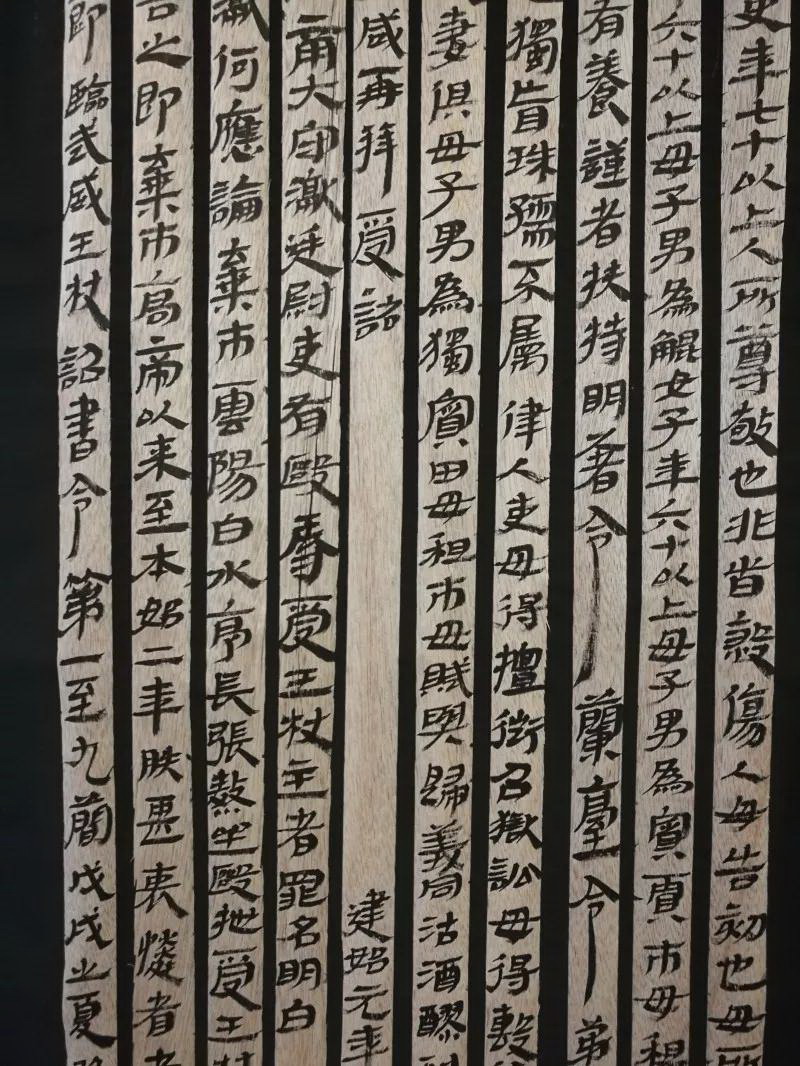 吏年七十以上人所尊敬也非首殺傷人毋告劾也毋所
六十以上毋子男為鯤女子年六十以上毋子男為寡賈市毋租
有養謹者扶持明著令 蘭臺令 第
獨盲珠孺不属律人吏毋得擅徵召獄訟毋得毄
妻俱毋子男為獨寡田毋租市毋賦與歸義同沽酒醪
咸再拜受詔 建始元年
甫大守讞廷尉吏有毆辱受王杖主者罪名明白
讞何應論棄市雲陽白水亭長張熬坐毆抴受王杖
召之即棄市高帝以来至本始二年朕甚哀憐耆老
即臨武威王杖詔書令第一至九蘭戊戌之夏